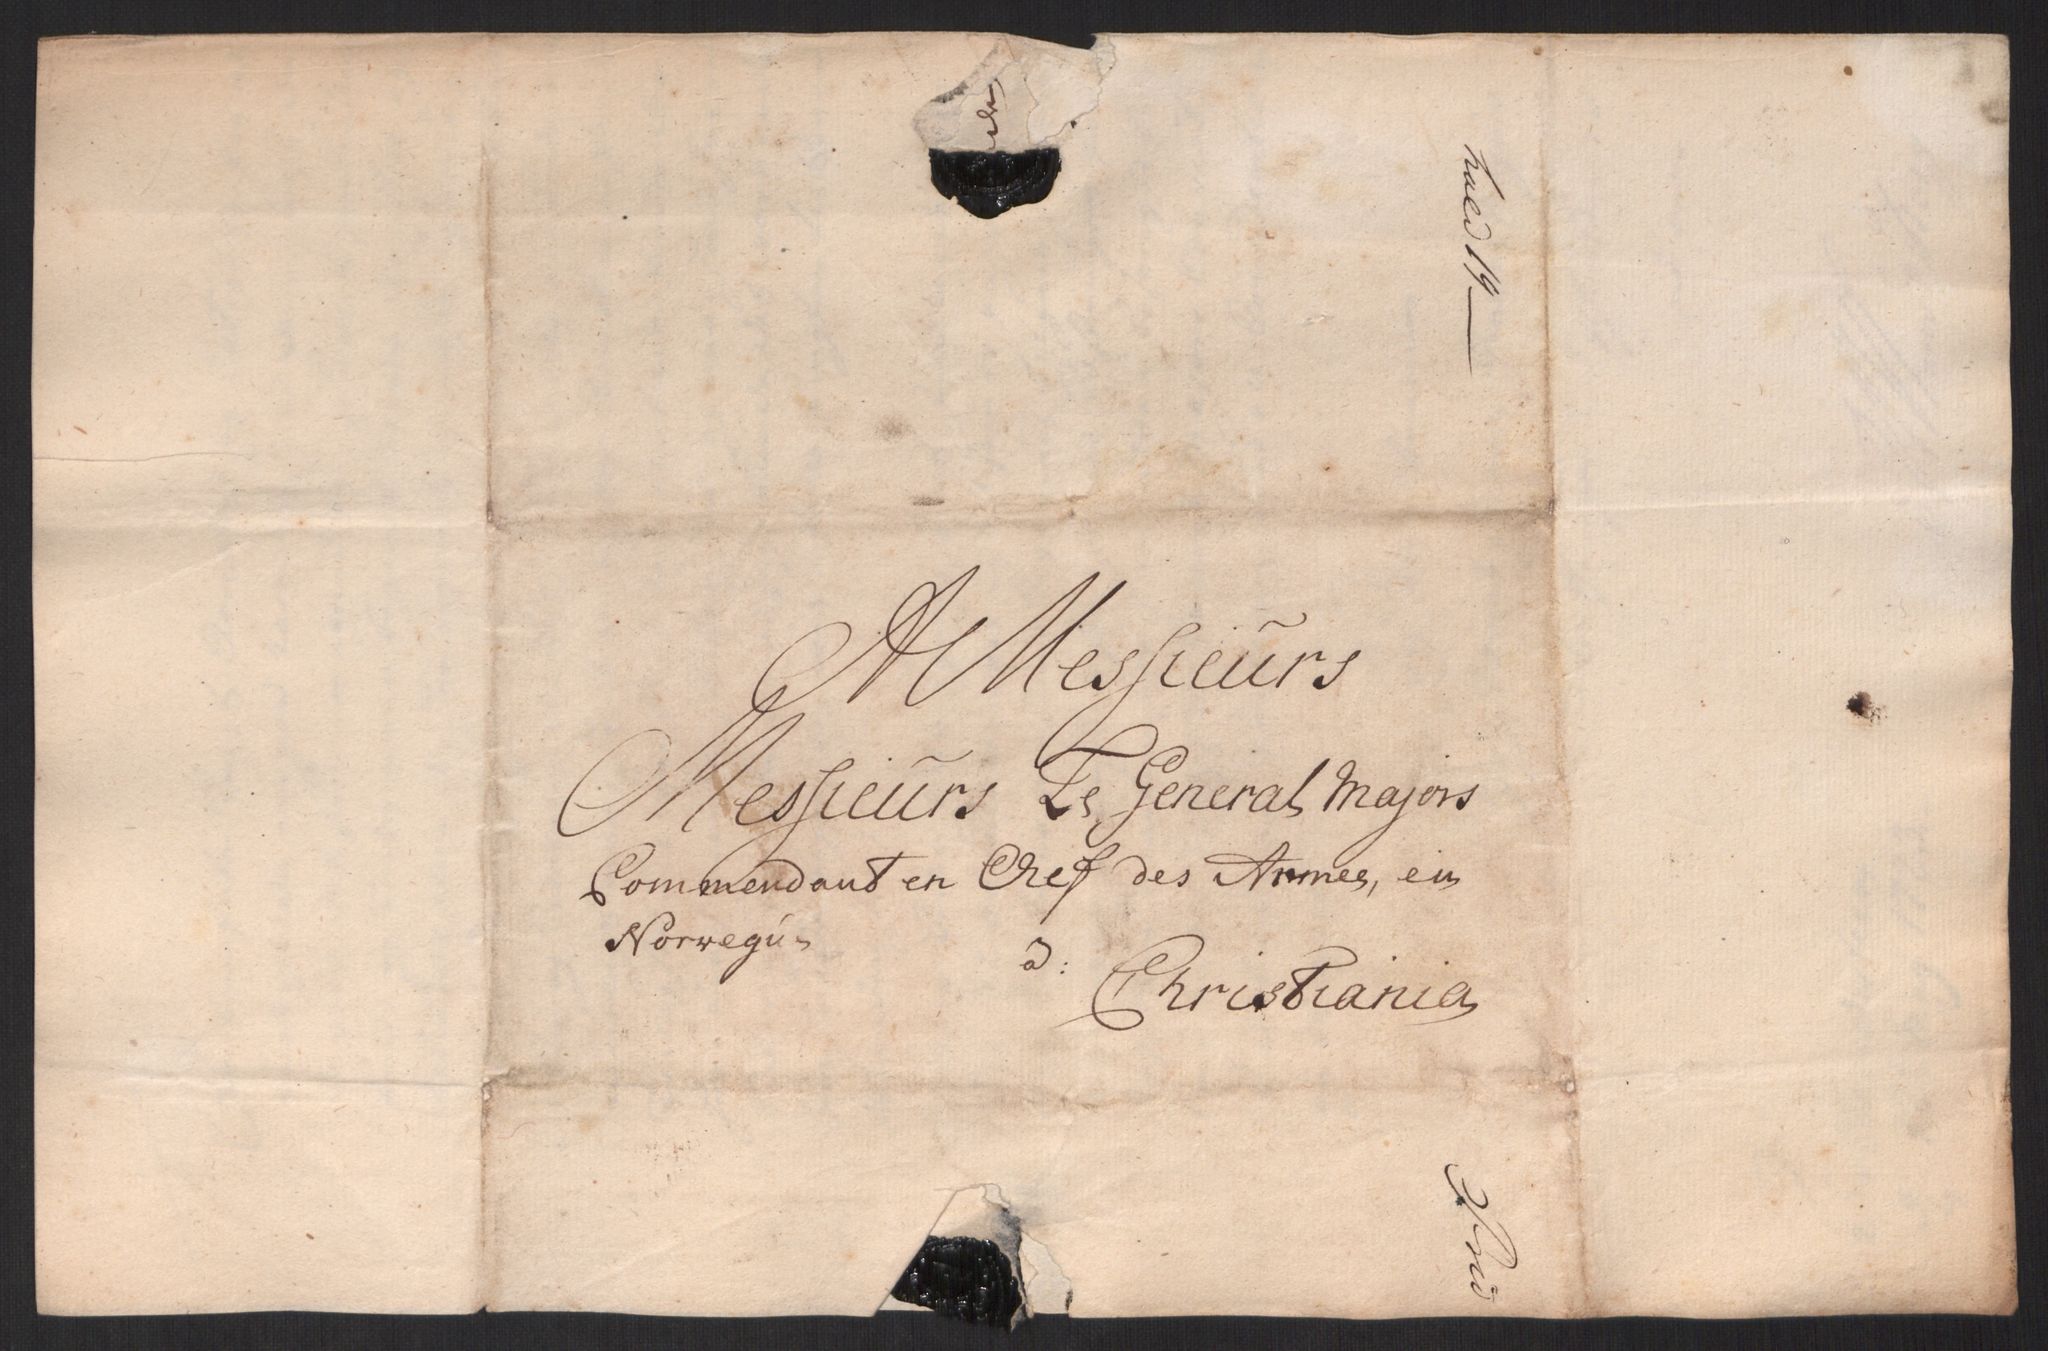 A Messieūrs
Messieūrs Le General Majors
Commendant en Chef des Armee, en
Norwegú
a:
Christiania